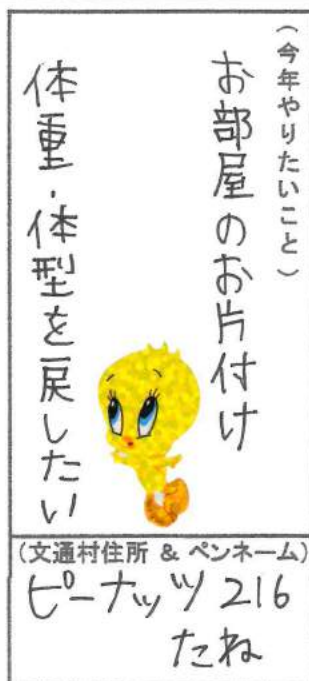 （今年やりたいこと）
お部屋のお片付け
体重・体型を戻したい
（文通村住所 & ペンネーム）
ピーナッツ216
たね